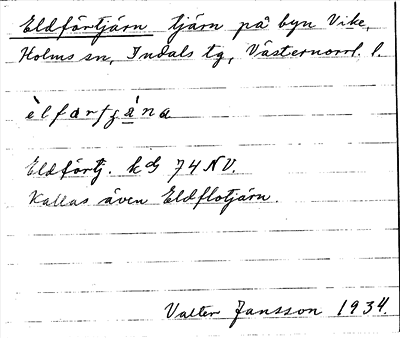 Eldförtjärn tjärn på byn Vike,
Holms sn, Indals tg, Västernorrl. l.
èlfartjàna
Eldförtj. kbl 74 NV.
Kallas även Eldflotjärn.
Valter Jansson 1934.